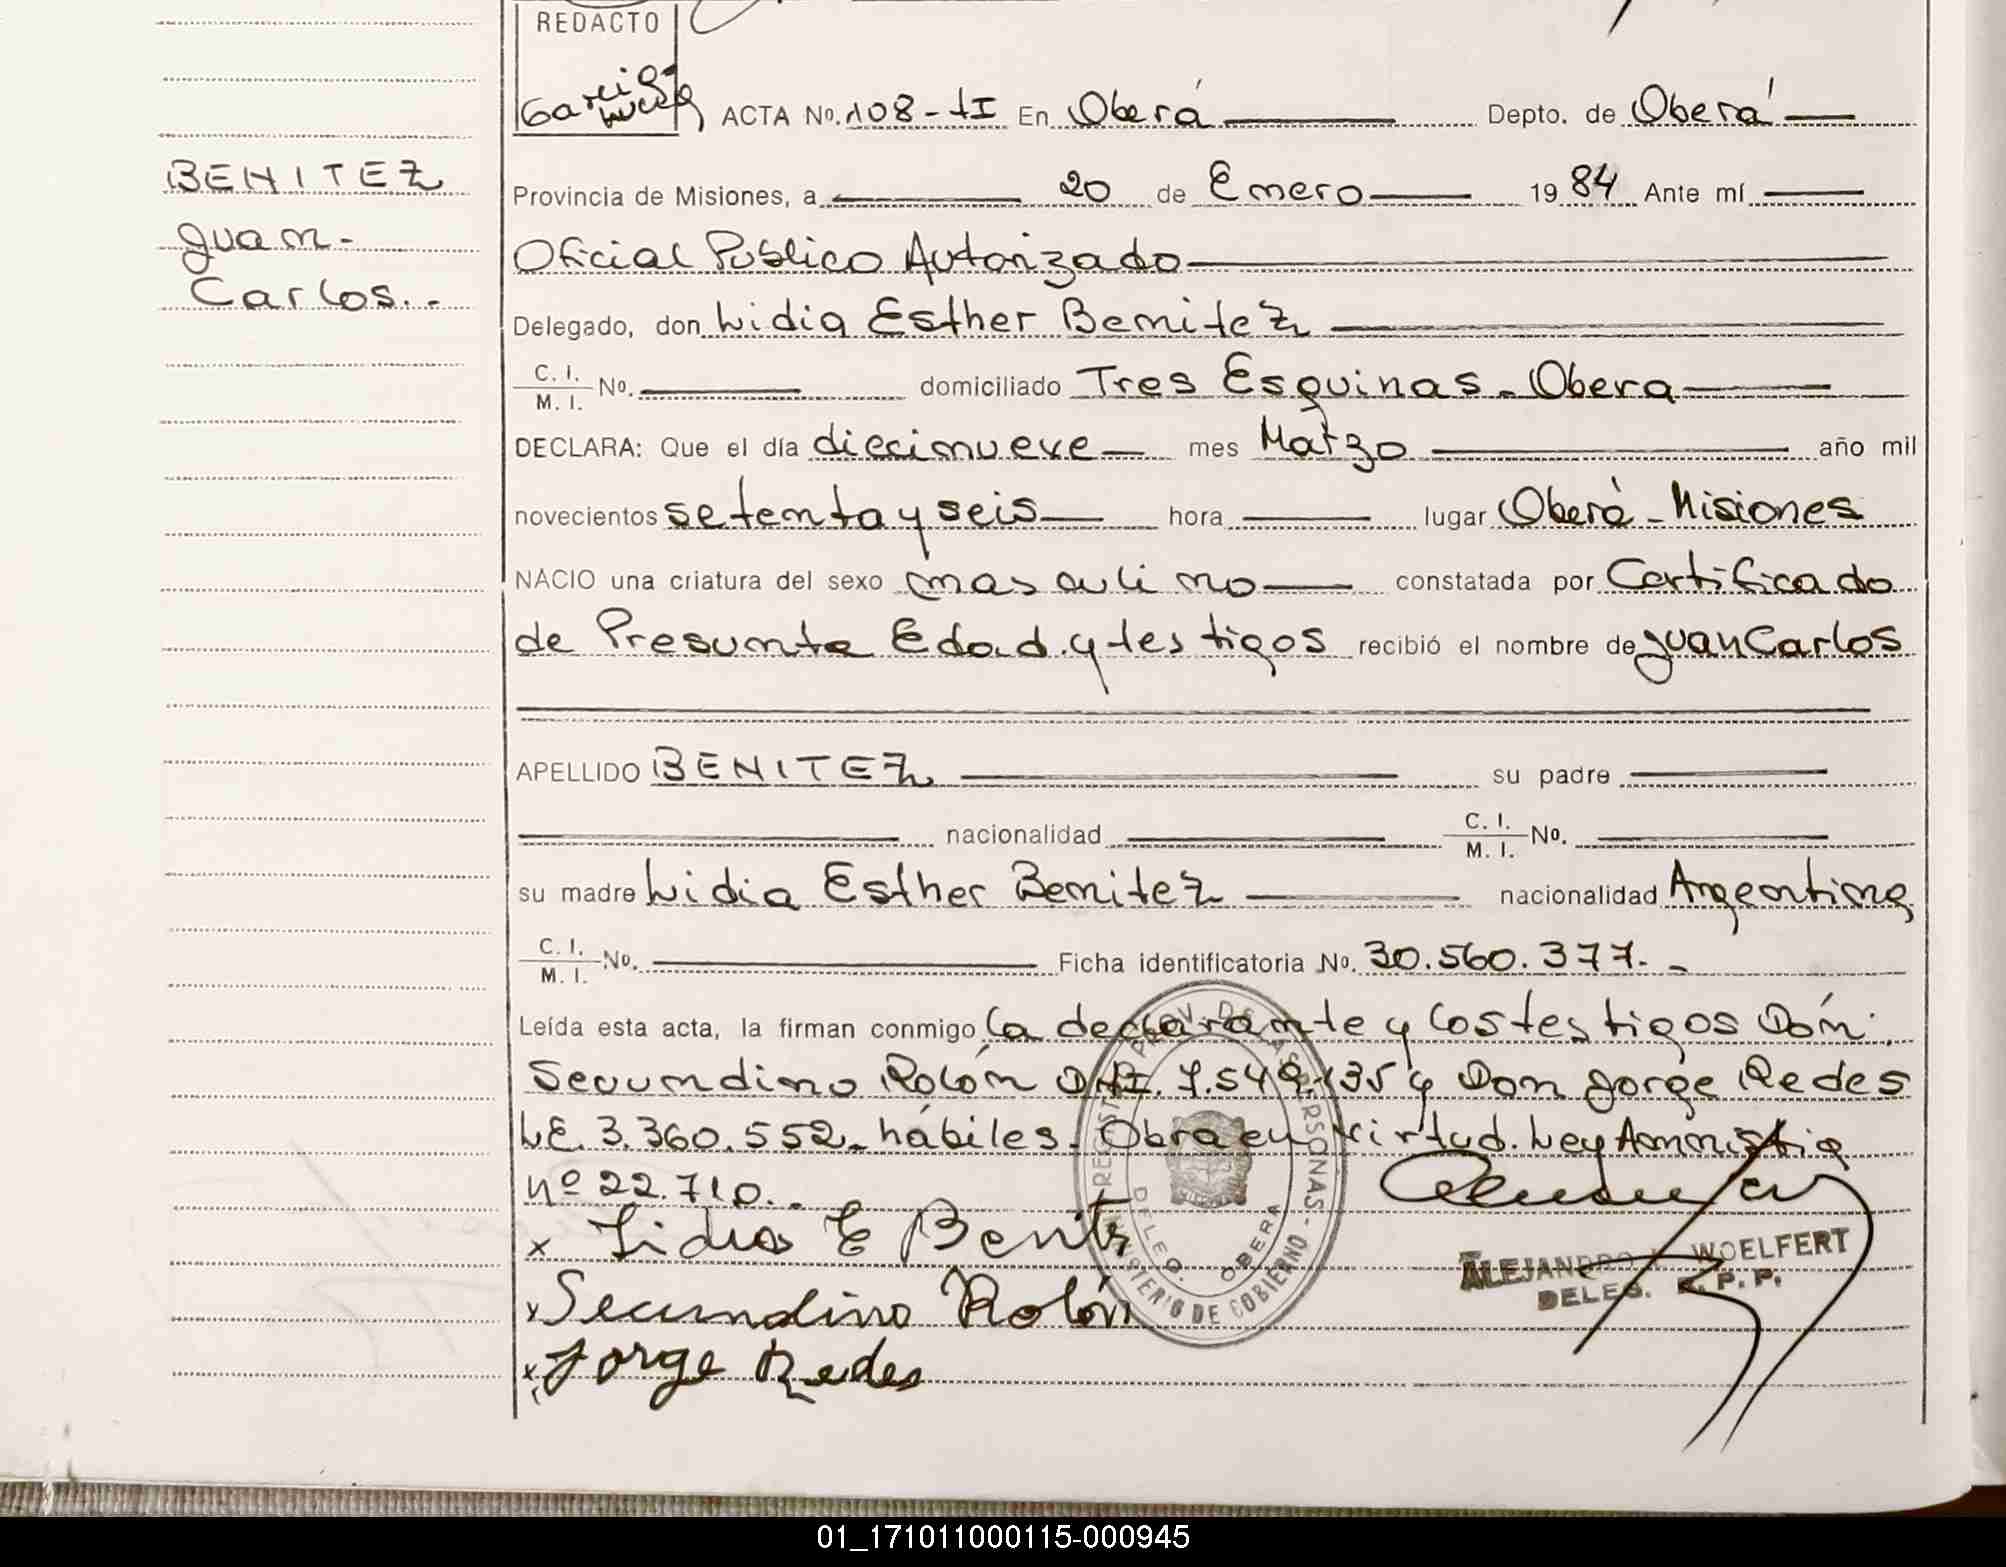 REDACTO
García
ACTA No. 108-tI En Oberá Depto. de Oberá
BENITEZ
Juan-
Carlos..-
Provincia de Misiones, a 20 de Enero 1984 Ante mí
Oficial Publico Autorizado
Delegado, don Lidia Esther Benitez
C. I.
M. I. No. domiciliado Tres Esquinas - Obera
DECLARA: Que el día diecinueve mes Marzo año mil
novecientos setenta y seis hora lugar Oberá - Misiones
NACIO una criatura del sexo masculino constatada por Certificado
de Presunta Edad y testigos recibió el nombre de Juan Carlos
APELLIDO BENITEZ su padre
nacionalidad C. I.
M. I. No.
su madre Lidia Esther Benitez nacionalidad Argentina
C. I.
M. I. No. Ficha identificatoria No. 30.560.377.-
Leída esta acta, la firman conmigo la declarante y los testigos Dón.
Secundino Rolón D.N.I. 7.549.135 y Don Jorge Redes
LE. 3.360.552- hábiles. Obra en virtud. Ley Amnistia
nº 22.710.
x Lidia E Benitz
x Secundino Rolón
x Jorge Redes
REGISTRO PROV. DE LAS PERSONAS - MINISTERIO DE GOBIERNO
DELEG. OBERA
ALEJANDRO WOELFERT
DELEG. R.P.P.
01_171011000115-000945